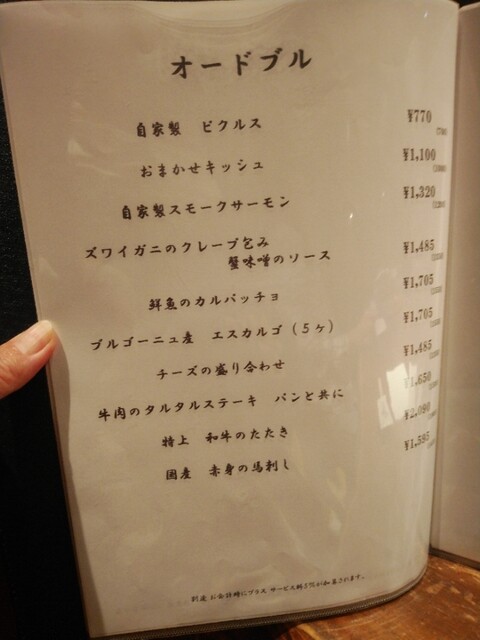 オードブル
自家製 ピクルス ¥770
おまかせキッシュ ¥1,100
自家製スモークサーモン ¥1,320
ズワイガニのクレープ包み
蟹味噌のソース ¥1,485
鮮魚のカルパッチョ ¥1,705
ブルゴーニュ産 エスカルゴ(5ヶ) ¥1,705
チーズの盛り合わせ ¥1,485
牛肉のタルタルステーキ パンと共に ¥1,650
特上 和牛のたたき ¥2,090
国産 赤身の馬刺し ¥1,595
別途 お会計時にプラス サービス料5%が加算されます。